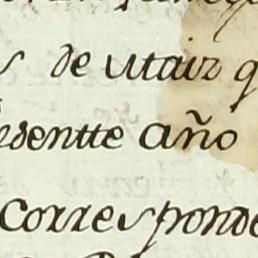 s de utaiz q
esentte año
corresponde